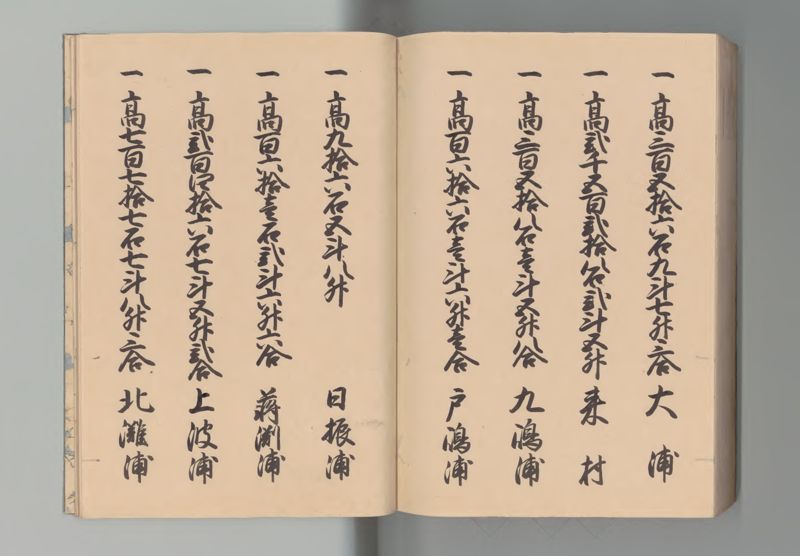 一 高三百五拾六石九斗七舛三合 大浦
一 高弐千五百弐拾八石弐斗五舛 来村
一 高三百五拾八石壱斗五舛八合 九嶋浦
一 高百六拾六石壱斗六舛壱合 戸嶋浦
一 高九拾六石五斗八舛 日振浦
一 高百六拾壱石弐斗六舛六合 蒋渕浦
一 高弐百四拾六石七斗五舛弐合 上波浦
一 高七百七拾七石七斗八舛三合 北灘浦